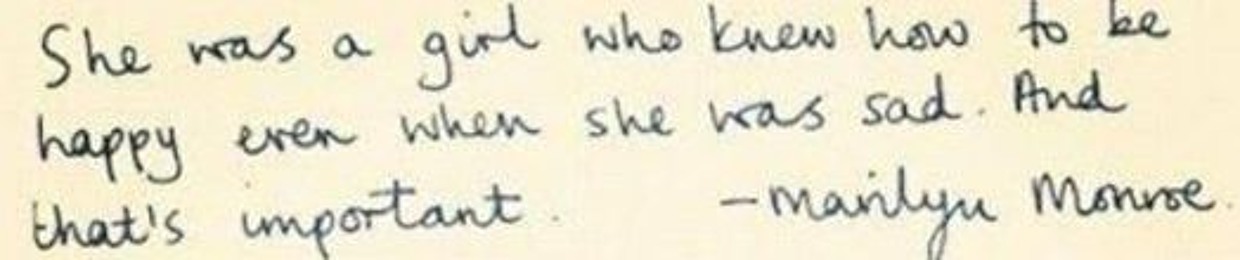 She was a girl who knew how to be
happy even when she was sad. And
that's important. -Marilyn Monroe.